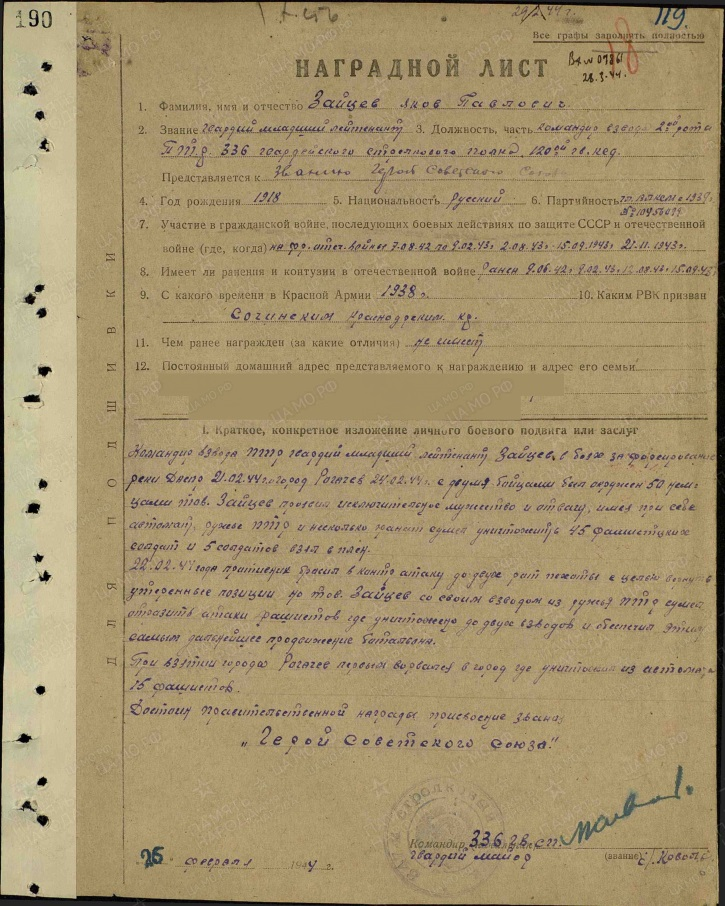 190
29/2.44г.
119.
Все графы заполнять полностью
18
Вх.№ 07861
28.3.44г.
НАГРАДНОЙ ЛИСТ
1. Фамилия, имя и отчество Зайцев Яков Павлович
2. Звание гвардий младший лейтенант 3. Должность, часть командир взвода 2ой роты
ПТР. 336 гвардейского стрелкового полка, 120ой гв. ксд.
Представляется к званию Герой Советского Союза
4. Год рождения 1918 5. Национальность русский 6. Партийность
7. Участие в гражданской войне, последующих боевых действиях по защите СССР и отечественной
войне (где, когда) на фр. отеч. войне с 7.08.42 по 9.02.43г. 2.08.43г.-15.09.1943г. 21.11.1943г.
8. Имеет ли ранения и контузии в отечественной войне Ранен 9.06.42г. 9.02.43г. 12.08.43г. 15.09.43г.
9. С какого времени в Красной Армии 1938г. 10. Каким РВК призван
Сочинским Краснодрским. кр.
11. Чем ранее награжден (за какие отличия) не имеет
12. Постоянный домашний адрес представляемого к награждению и адрес его семьи
I. Краткое, конкретное изложение личного боевого подвига или заслуг
Командир взвода ПТР гвардий младший лейтенант Зайцев, в боях за форсирование
реки Днепр 21.02.44г. город Рогачев 24.02.44г. с двумя бойцами был окружен 50 нем-
цами тов. Зайцев проявил исключительное мужество и отвагу, имея при себе
автомат, ружье ПТР и несколько гранат сумел уничтожить 45 фашистских
солдат и 5 солдатов взял в плен.
22.02.44 года противник бросил в контр атаку до двух рот пехоты с целью вернуть
утеренные позиции, но тов. Зайцев со своим взводом из ружья ПТР сумел
отразить атаки фашистов где уничтожено до двух взводов и обеспечил этим
самым дальнейшее продвижение баталиона.
При взятии города Рогачев первым ворвался в город где уничтожил из автомата
15 фашистов.
Достоин правительственной награды присвоение звания
„Герой Советского Союза."
ДЛЯ ПОДШИВКИ
Командир 336 гв. сп.
гвардий майор (звание)
26 февраля 1944 г.
ЦАМО.РФ